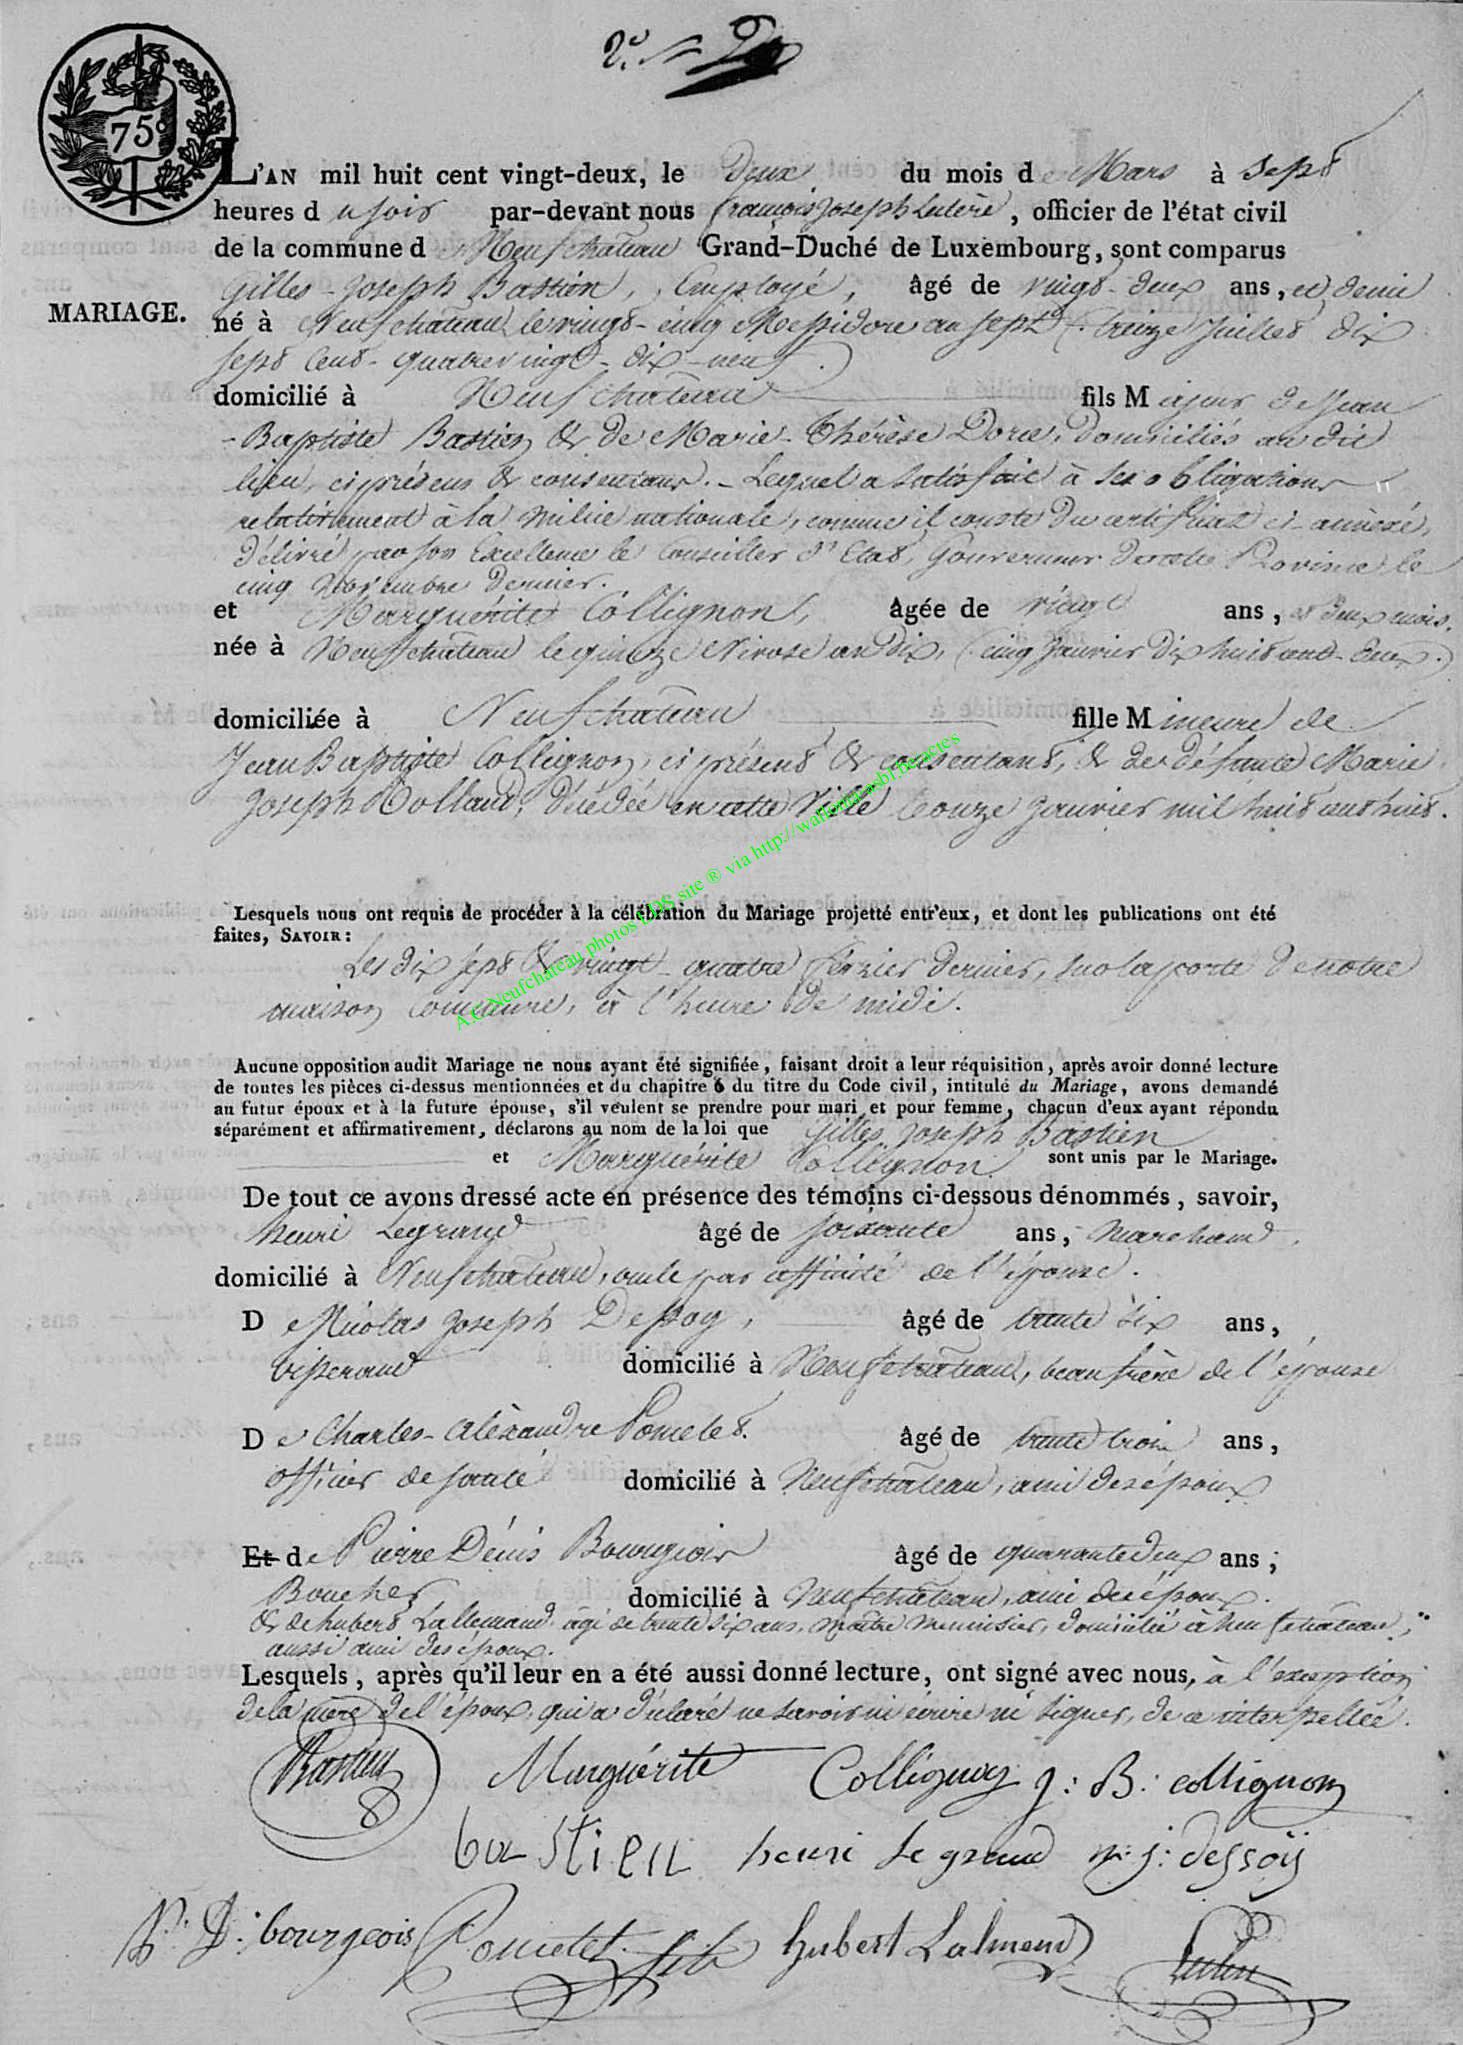 2.e N.
75c
L'AN mil huit cent vingt-deux, le deux du mois de Mars à sept
heures du soir par-devant nous François Joseph, officier de l'état civil
de la commune de Neufchâteau Grand-Duché de Luxembourg, sont comparus
Gilles-Joseph Bastien, Employé, âgé de vingt-deux ans, et demi
MARIAGE.
né à Neufchâteau le vingt-cinq Messidore an sept (treize juillet dix
sept cent-quatrevingt-dix-neuf.)
domicilié à Neufchâteau fils Majeur de Jean
-Baptiste Bastien & de Marie-Thérèse Dorce, domiciliés au dit
lieu, ci présens & consentans.- Lequel a satisfait à ses obligations
relativement à la milice nationale, comme il conste du certificat ci-annexé,
délivré par son Excellence le Conseiller d'Etat, Gouverneur de cette Province le
cinq Novembre dernier.
et Marguérite Collignon, âgée de vingt ans, et deux mois.
née à Neufchâteau le quinze Nivose an dix, (cinq Janvier dix huit cent-deux.)
domiciliée à Neufchâteau fille Mineure de
Jean Baptiste Collignon, ci présent & consentant, & de défunte Marie
Joseph Rolland, décédée en cette Ville le onze Janvier mil huit cent huit.
Lesquels nous ont requis de procéder à la célébration du Mariage projetté entr'eux, et dont les publications ont été
faites, SAVOIR:
Les dix sept & vingt-quatre février dernier, sur la porte de notre
maison commune, à l'heure de midi.
Aucune opposition audit Mariage ne nous ayant été signifiée, faisant droit a leur réquisition, après avoir donné lecture
de toutes les pièces ci-dessus mentionnées et du chapitre 6 du titre du Code civil, intitulé du Mariage, avons demandé
au futur époux et à la future épouse, s'il veulent se prendre pour mari et pour femme, chacun d'eux ayant répondu
séparément et affirmativement, déclarons au nom de la loi que Gilles Joseph Bastien
et Marguérite Collignon sont unis par le Mariage.
De tout ce avons dressé acte en présence des témoins ci-dessous dénommés, savoir,
henri Legrand âgé de soixante ans, marchand,
domicilié à Neufchâteau, oncle par affinité de l'épouse.
De Nicolas Joseph Dessoy, âgé de trente six ans,
tisserand domicilié à Neufchâteau, beau frère de l'épouse
De Charles-Aléxandre Poncelet. âgé de trente trois ans,
officier de santé domicilié à Neufchâteau, ami des époux
Et de Pierre Dénis Bourgeois âgé de quarante deux ans;
Boucher domicilié à Neufchâteau, ami des époux.
& de hubert Lallemand âgé de trente six ans, maître menuisier, domicilié à Neufchâteau,
aussi ami des époux.
Lesquels, après qu'il leur en a été aussi donné lecture, ont signé avec nous, à l'exception
de la mère de l'époux, qui a déclaré ne savoir ni écrire ni signer, de ce interpellée.
Bastien Marguérite Collignon j: B: collignon
bastien henri le grand n: j: dessoÿ
P: D: bourgeois Poncelet hubert Lalmend
A.C. Neufchateau photos LDS site ® via http://wallonia-asbl.be/actes